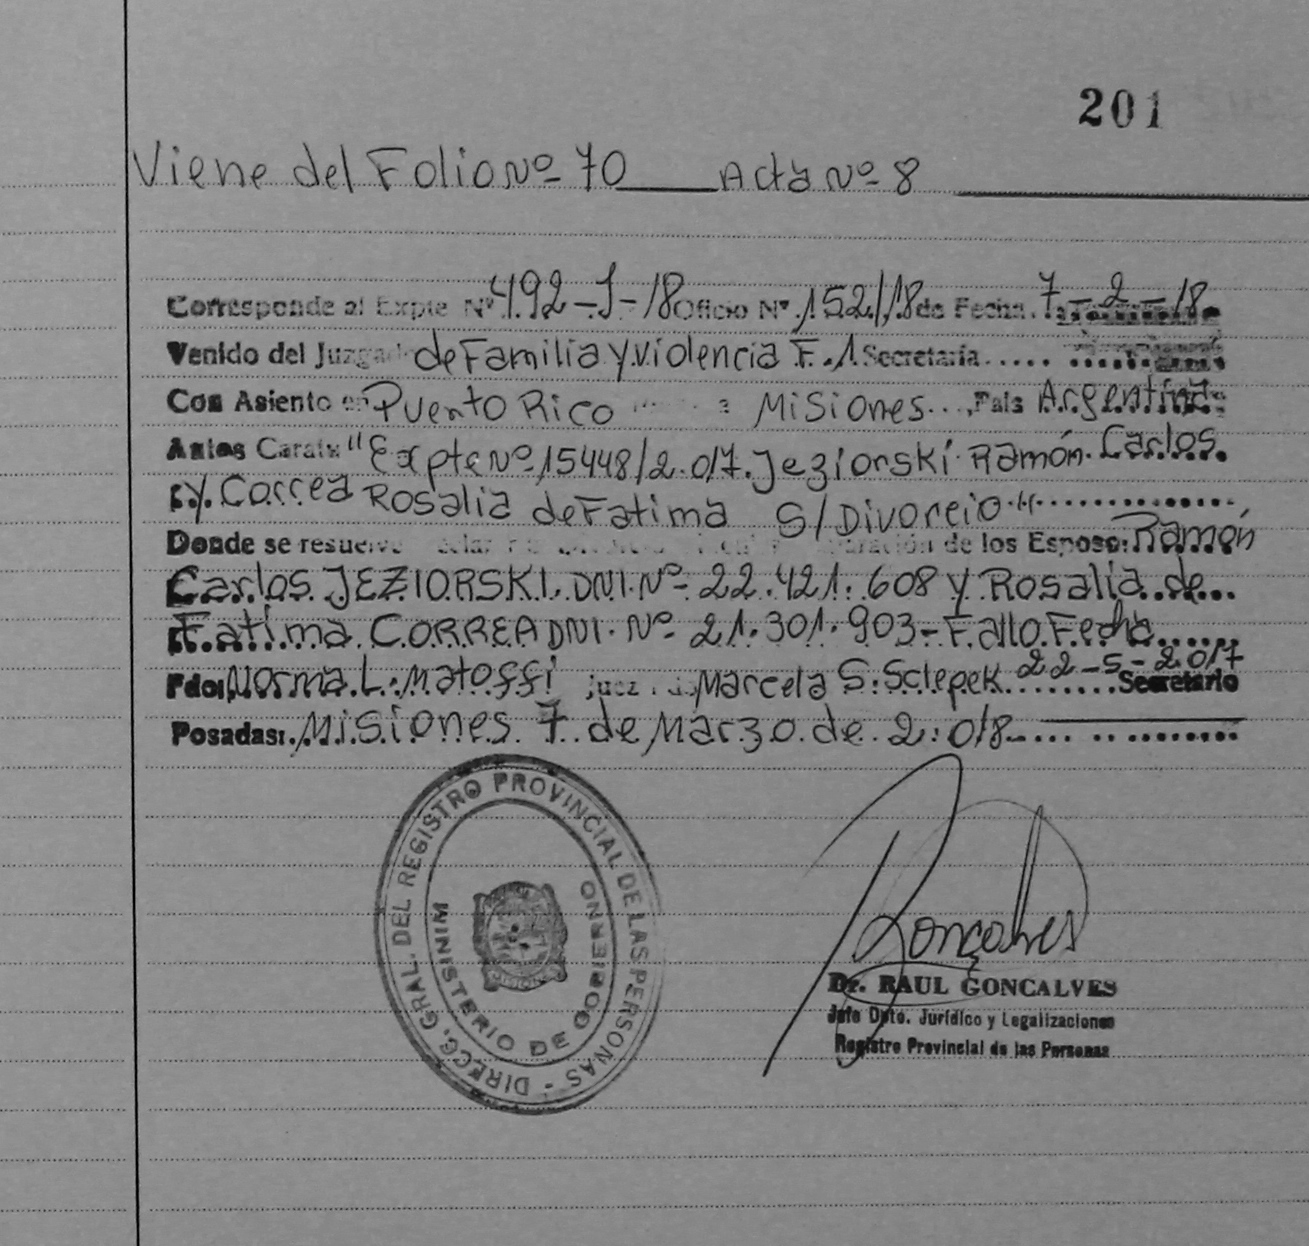 201
Viene del Folio Nº 70 Acta Nº 8
Corresponde al Expte Nº 492-J-18 Oficio Nº 152/18 de Fecha 7-2-18
Venido del Juzgado de Familia y violencia F. 1 Secretaría
Con Asiento en Puerto Rico Misiones País Argentina
Autos Carat "Expte Nº 15448/2.017. Jeziorski Ramón Carlos
y Correa Rosalia de Fatima S/Divorcio"
Donde se resuelve de los Esposo: Ramón
Carlos JEZIORSKI. DNI. Nº 22.421.608 y Rosalia de
Fatima CORREA DNI. Nº 21.301.903-Fallo Fecha
22-5-2017
Fdo: Norma L. Matoffi juez Marcela S. Sclepek Secretario
Posadas: Misiones 7 de Marzo de 2.018
DIRECC. GRAL. DEL REGISTRO PROVINCIAL DE LAS PERSONAS -
MINISTERIO DE GOBIERNO
MISIONES
Goncalves
Dr. RAUL GONCALVES
Jefe Dpto. Jurídico y Legalizaciones
Registro Provincial de las Personas